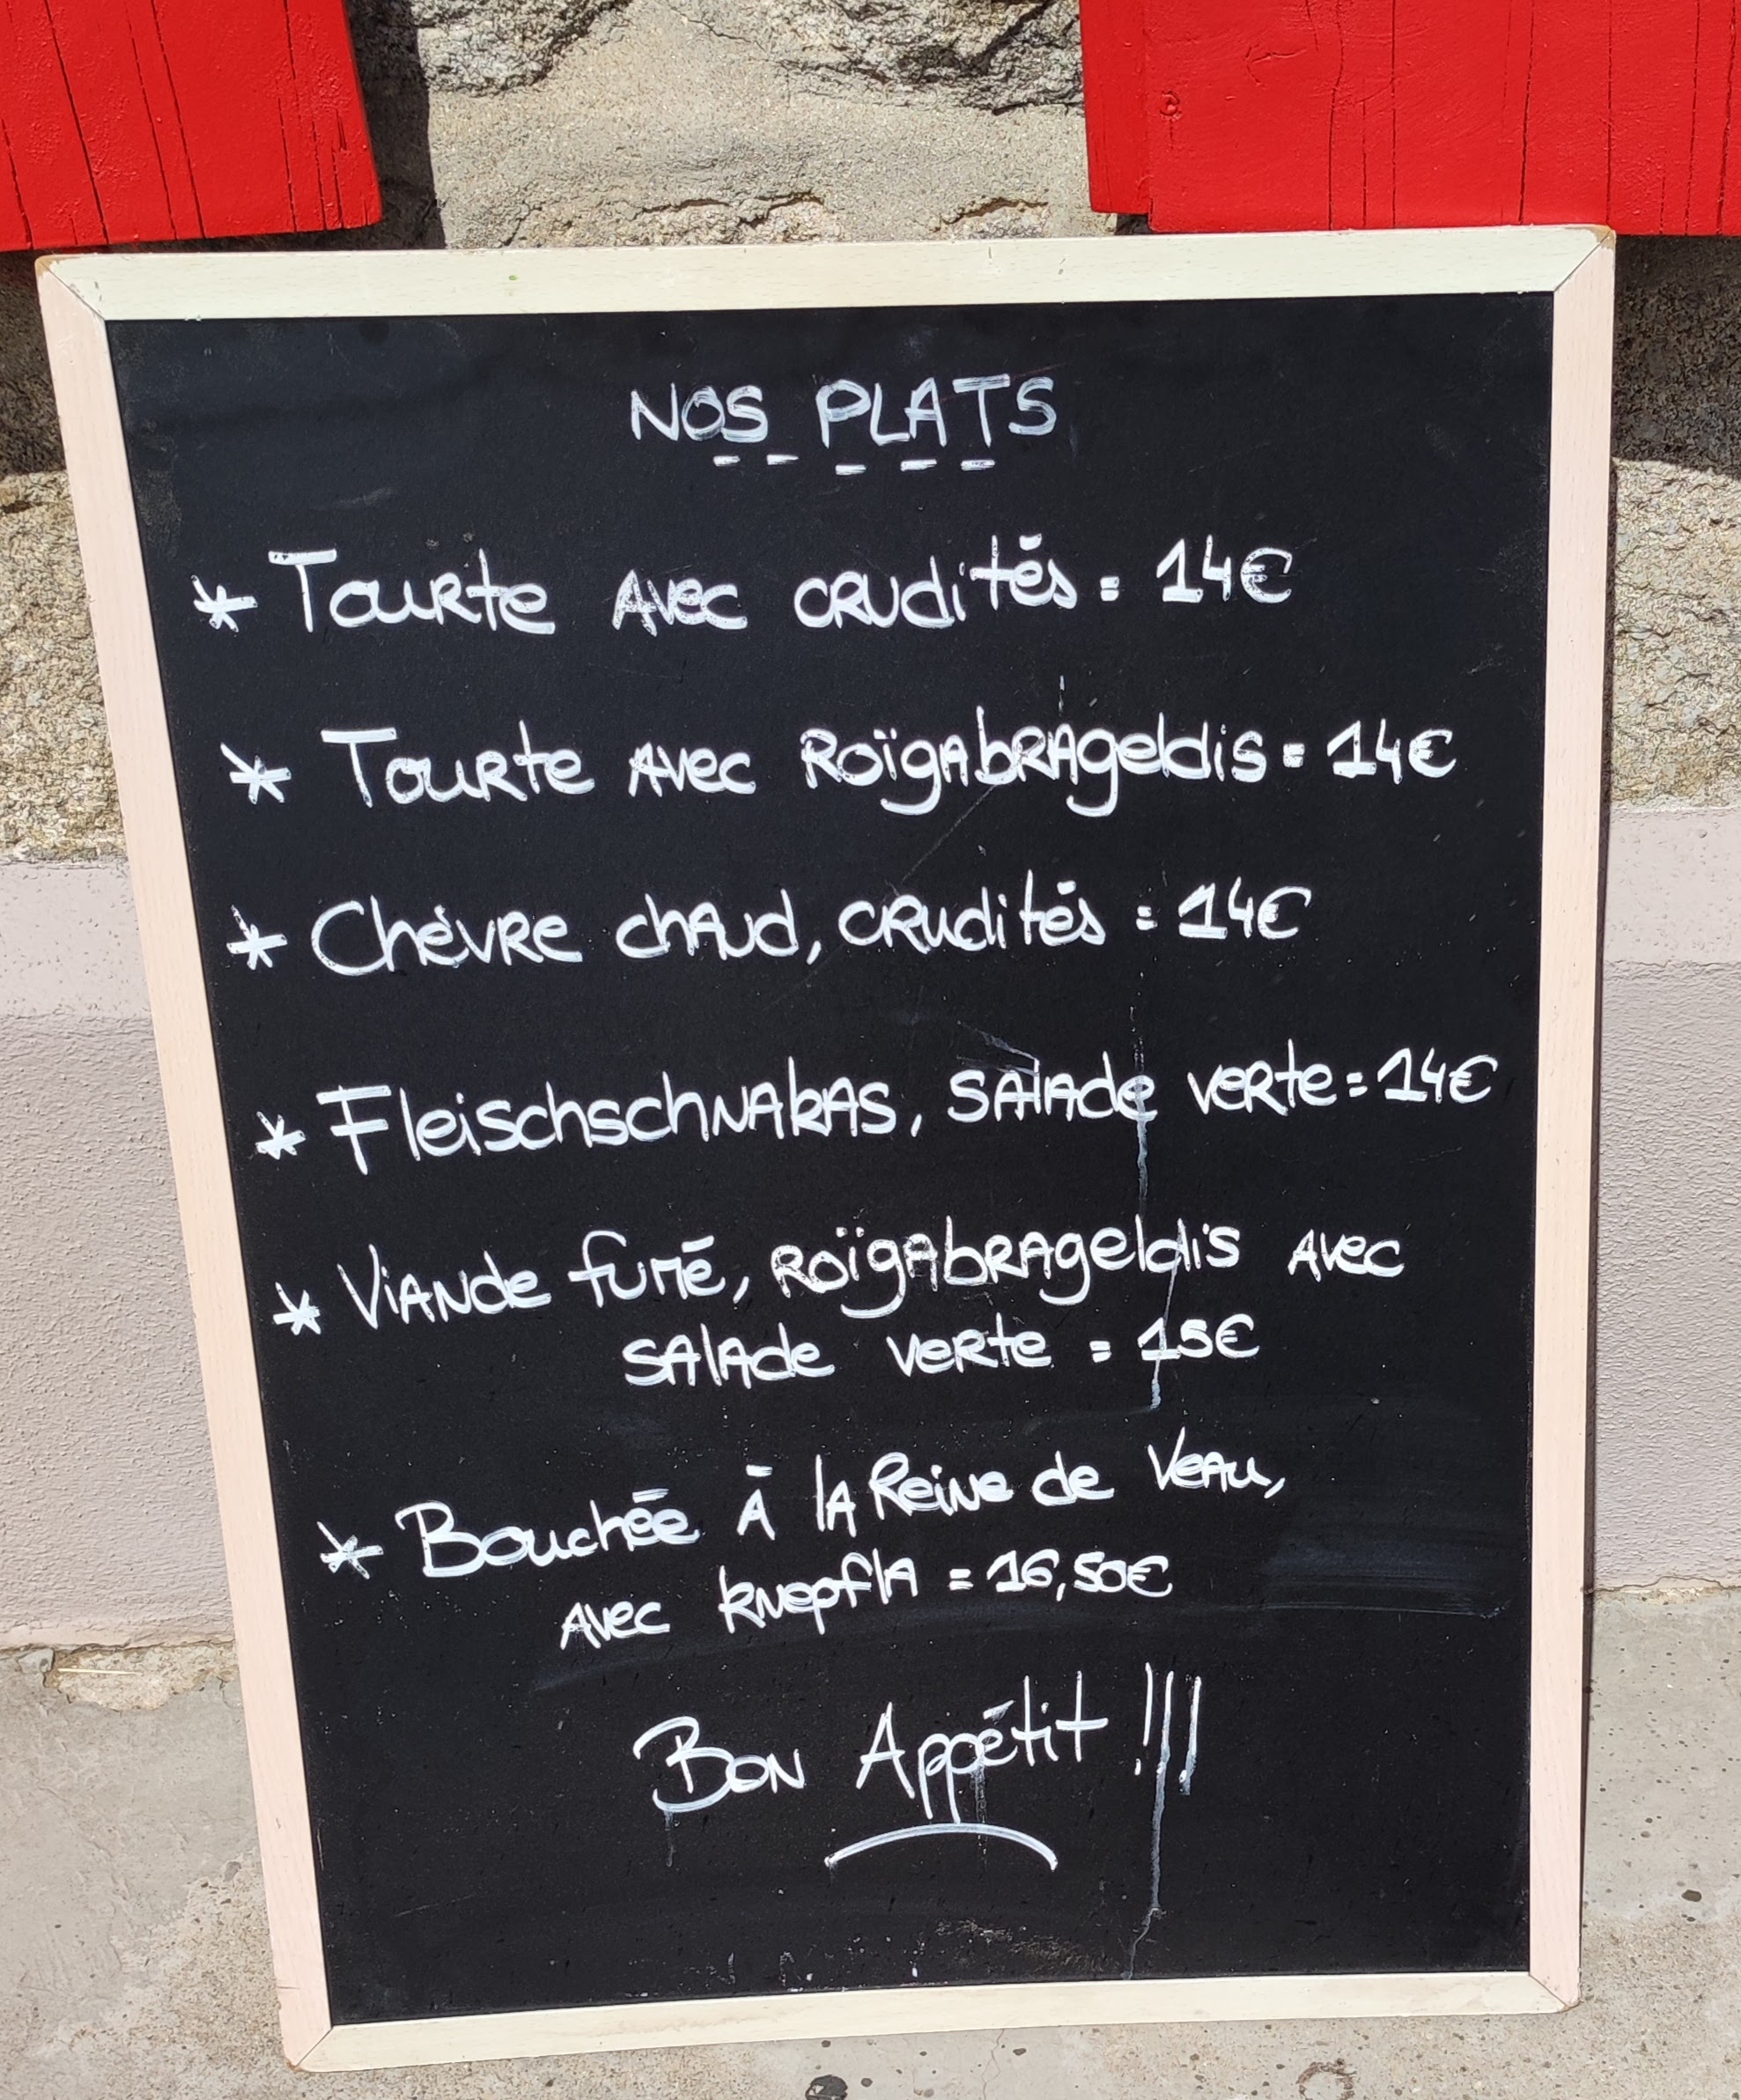 NOS PLATS
* Tourte avec crudités = 14€
* Tourte avec Roïgabrageldis = 14€
* Chèvre chaud, crudités = 14€
* Fleischschnakas, salade verte = 14€
* Viande fumé, roïgabrageldis avec
salade verte = 15€
* Bouchée à la Reine de Veau,
avec knepfla = 16,50€
Bon Appétit !!!